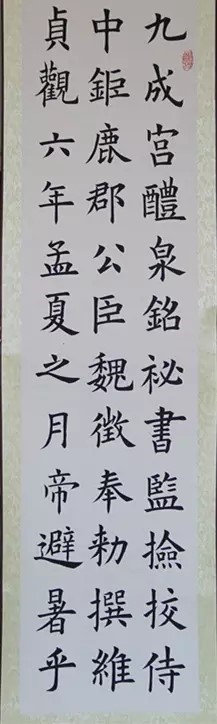 九成宮醴泉銘祕書監撿挍侍
中鉅鹿郡公臣魏徵奉勑撰維
貞觀六年孟夏之月帝避暑乎